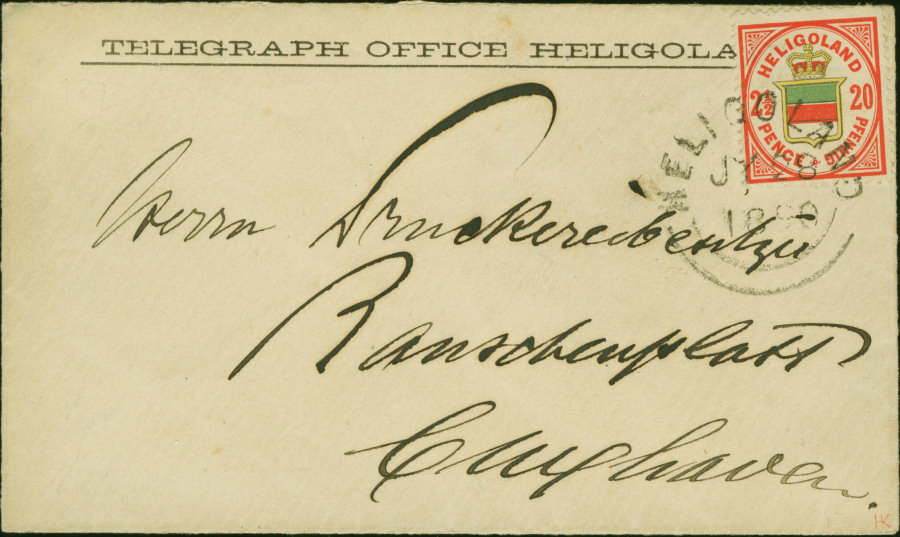 TELEGRAPH OFFICE HELIGOLA
HELIGOLAND
2½ 20
PENCE & PFENNIG
HELIGOLAND
JY 18
Herrn Druckereibesitzer
Rauschenplatt
Cuxhaven.
HK